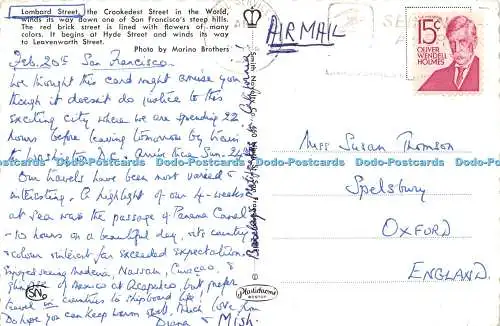 Lombard Street, the Crookedest Street in the World,
winds its way down one of San Francisco's steep hills.
The red brick street is lined with flowers of many
colors. It begins at Hyde Street and winds its way
to Leavenworth Street.
Photo by Marino Brothers
Feb. 20th San Francisco.
We thought this card might amuse you
though it doesn't do justice to this
exciting city where we are spending 22
hours before leaving tomorrow by train
Our travels have been most varied &
interesting. A highlight of our 4-weeks
at sea was the passage of Panama Canal
- 10 hours on a beautiful day, its country
& colour interest far exceeded expectations.
Enjoyed seeing Madeira, Nassau, Curaçao, &
glimpse of Mexico at Acapulco, but prefer
travel in countries to shipboard life!
Do hope you can keep warm still. Much love from
Diana & Mish.
SN
Plastichrome
BOSTON
AIRMAIL
15c
OLIVER
WENDELL
HOLMES
Miss Susan Thomson
Spelsbury
OXFORD
ENGLAND.
Dodo-Postcards